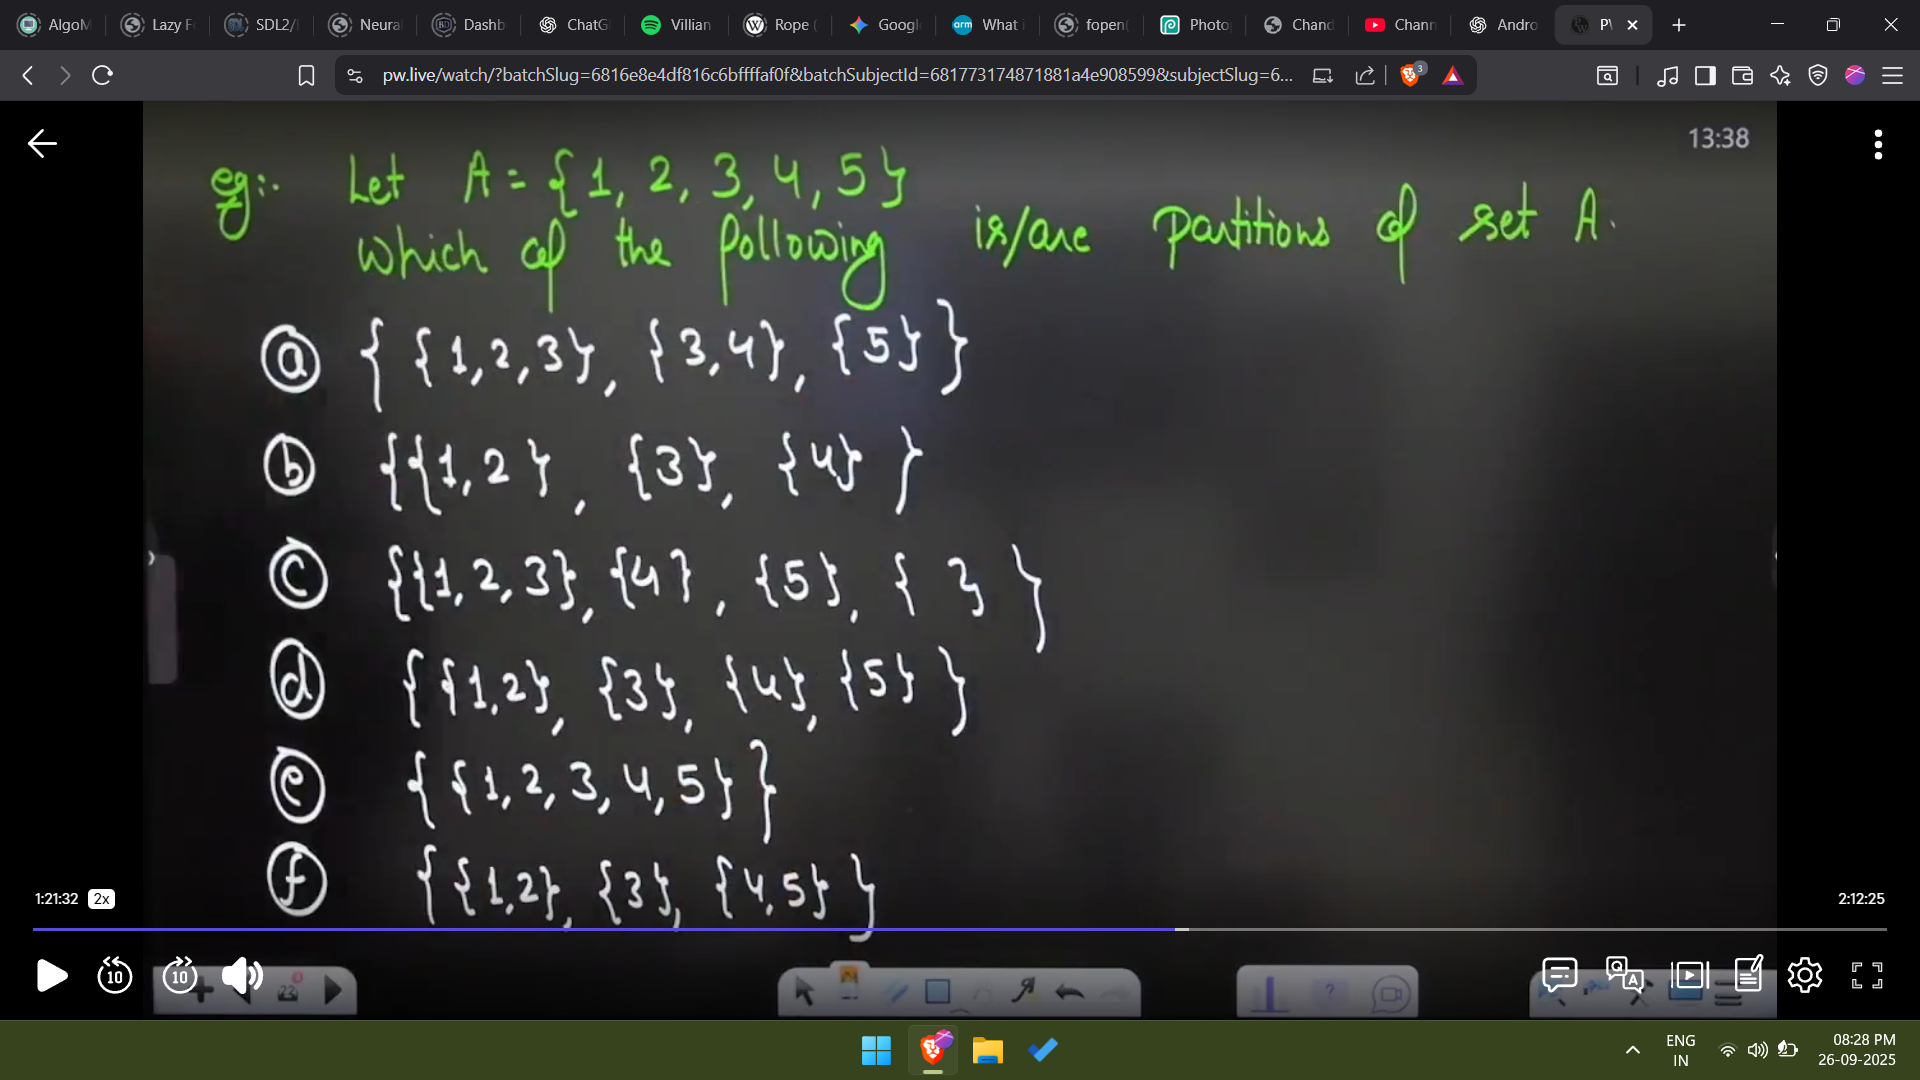 AlgoM
Lazy F
SDL2/
Neura
Dashb
ChatG
Villian
Rope (
Googl
What i
fopen(
Photo
Chand
Chann
Andro
PW
pw.live/watch/?batchSlug=6816e8e4df816c6bffffaf0f&batchSubjectId=681773174871881a4e908599&subjectSlug=6...
3
13:38
eg:. Let A = {1, 2, 3, 4, 5}
which of the following is/are partitions of set A.
(a) { {1,2,3}, {3,4}, {5} }
(b) {{1,2}, {3}, {4} }
(c) {{1,2,3}, {4}, {5}, { } }
(d) { {1,2}, {3}, {4}, {5} }
(e) { {1,2,3,4,5} }
(f) { {1,2}, {3}, {4,5} }
1:21:32 2x
2:12:25
10
10
22
ENG
IN
08:28 PM
26-09-2025